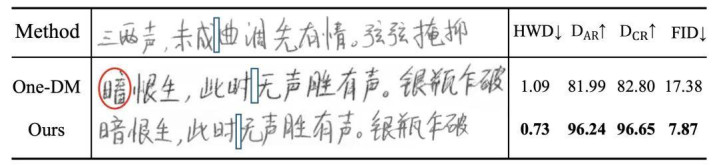 Method 三两声,未成曲调先有情。弦弦掩抑 HWD↓ D_AR↑ D_CR↑ FID↓
One-DM 暗恨生,此时无声胜有声。银瓶乍破 1.09 81.99 82.80 17.38
Ours 暗恨生,此时无声胜有声。银瓶乍破 0.73 96.24 96.65 7.87